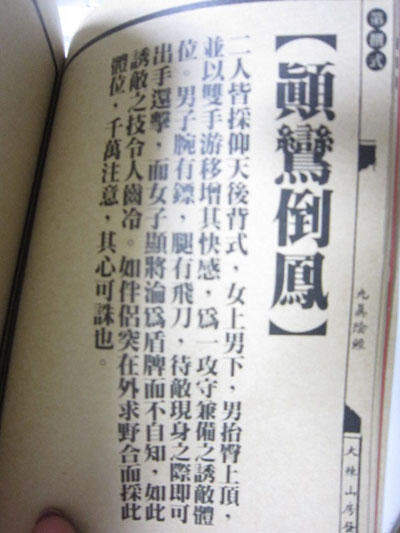 【顚鸞倒鳳】
二人皆採仰天後背式，女上男下，男抬臀上頂，
並以雙手游移增其快感，爲一攻守兼備之誘敵體
位。男子腕有鏢，腿有飛刀，待敵現身之際即可
出手還擊，而女子顯將淪爲盾牌而不自知，如此
誘敵之技令人齒冷。如伴侶突在外求野合而採此
體位，千萬注意，其心可誅也。
九真陰經